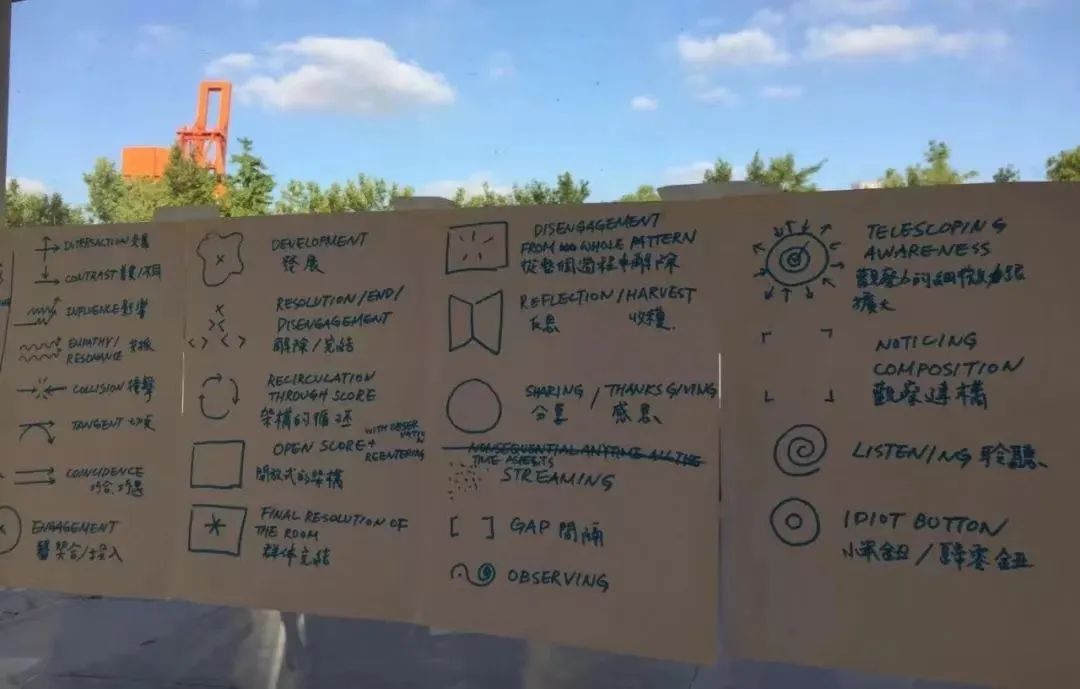 INTERSACTION 交集
CONTRAST 對比/不同
INFLUENCE 影響
EMPATHY/
RESONANCE
COLLISION 撞擊
TANGENT 切頁
COINCIDENCE
巧合.巧遇
ENGAGEMENT
契合/投入
DEVELOPMENT
發展
RESOLUTION/END/
DISENGAGEMENT
解除/完結
RECIRCULATION
THROUGH SCORE
架構的循环
OPEN SCORE +
WITH OBSERVATION
REENTERING
開放式的架構
FINAL RESOLUTION OF
THE ROOM
群体完結
DISENGAGEMENT
FROM WHOLE PATTERN
從整個過程中解除
REFLECTION/HARVEST
反思 收穫
SHARING / THANKS GIVING
分享 感恩
NONSEQUENTIAL ANYTIME ALL TIME
TIME ASPECTS
STREAMING
GAP 間隔
OBSERVING
TELESCOPING
AWARENESS
觀察力的細微
擴大
NOTICING
COMPOSITION
觀察建構
LISTENING 聆聽
IDIOT BUTTON
小笨鈕/歸零鈕